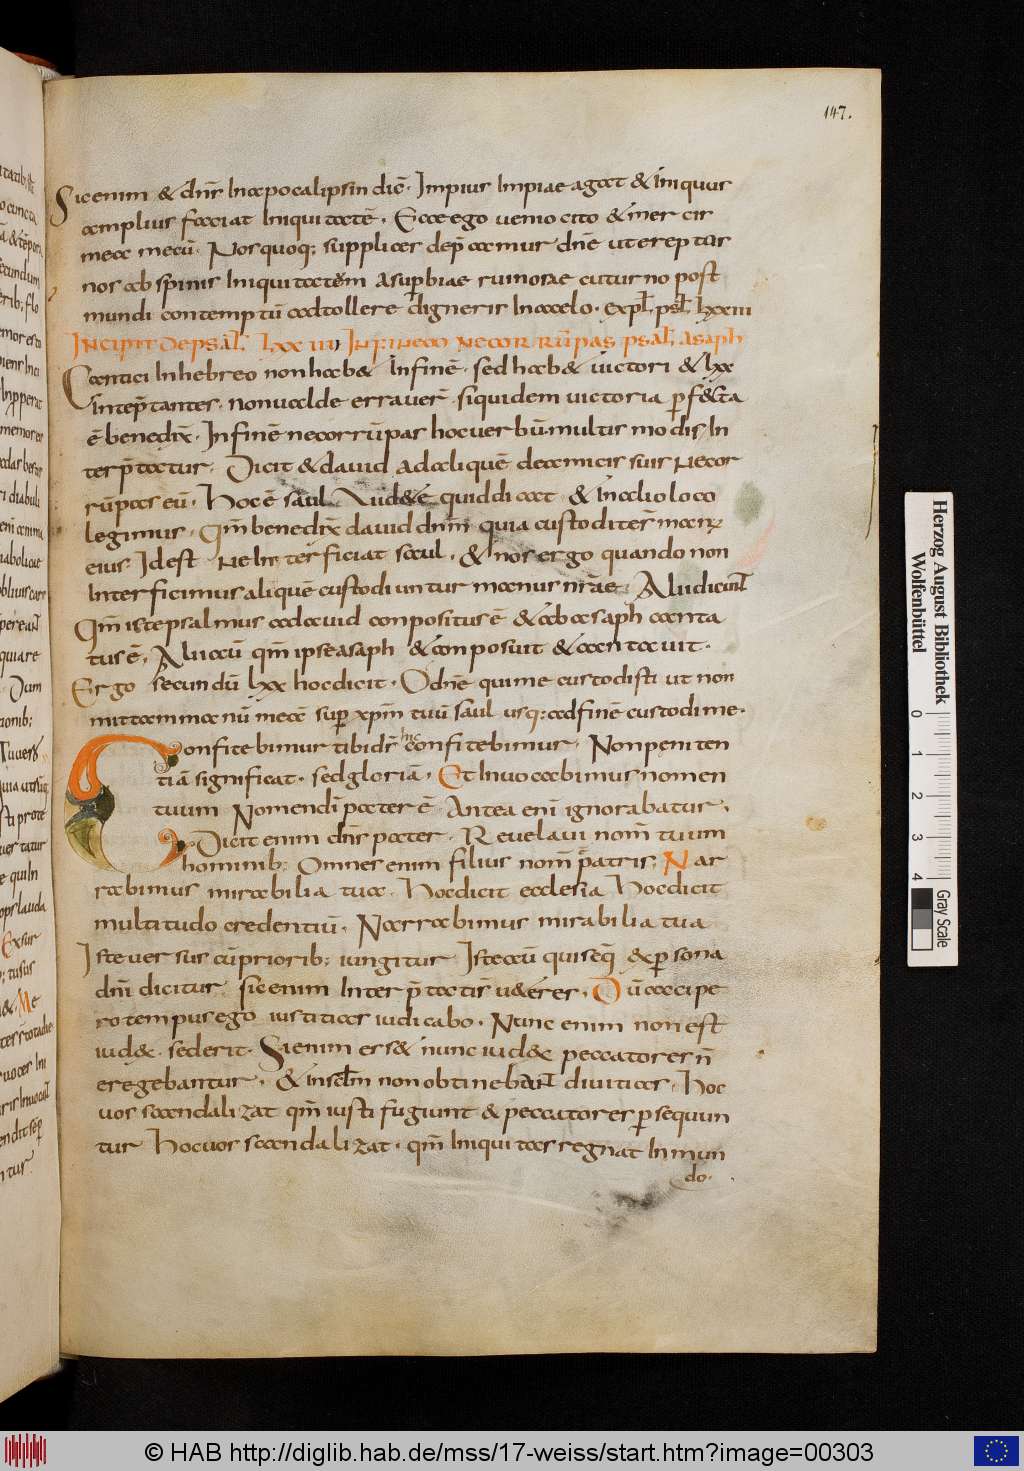 147.
Sicenim & dn̅s Inapocalipsin dic̅. Impius impiae agat & iniquus
amplius faciat iniquitate̅. Ecce ego uenio cito & mer cis
mea mecu̅. Nos quoq; supplices dep̅camur dn̅e ut ereptus
nos ab spinis iniquitatem a sup̅biae ruinosae cuius no post
mundi contemptu̅ ad tollere digneris In caelo. expł. psł. lxxiii
INCIPIT De psal̅ LXX IIII IN FINEM NE COR RU̅PAS psal̅ asaph
Cantici In hebreo non hab& Infine̅. sed hab& uictori & lxx
Interp̅tantes. non ualde erraver̅. siquidem uictoria p̅f&cta
e̅ benedix̅. Infine̅ ne corru̅pas hoc uerbu̅ multis modis In
terp̅tatur. Dicit & dauid ad alique̅ de amicis suis Ne cor
ru̅pas eu̅. Hoc e̅ saul Aud& e̅ quid dicat. & In alio loco
legimus. Qm̅ benedix̅ dauid dn̅m quia custoditer̅ manus
eius Id est Ne In ter ficiat saul. & nos ergo quando non
Interficimus alique̅ custodiuntur manus nr̅ae. Alii dicunt
Qm̅ iste psalmus ad dauid compositus e̅ & ab asaph canta
tus e̅. Alii au̅ qm̅ ipse asaph & composuit & cantauit.
Ergo secundu̅ lxx hoc dicit. O dn̅e qui me custodisti ut non
mittam manu̅ mea̅ sup̅ xp̅m tuu̅ saul usq; ad fine̅ custodi me.
Confitebimur tibi ds̅ hic confitebimur. Non peniten
tia̅ significat. sed gloria̅. Et Inuocabimus nomen
tuum Nomen di̅ pater e̅ Antea eni̅ ignorabatur.
Dicit enim dn̅s pater. Reuelaui nom̅ tuum
hominib; Omnes enim filius nom̅ patris. Nar
rabimus mirabilia tua. Hoc dicit ecclesia Hoc dicit
multitudo credentiu̅. Narrabimus mirabilia tua
Iste uersus cu̅ priorib; iungitur Iste au̅ qui seq̅ ex p̅sona
dn̅i dicitur sic enim Interp̅tatis uideres. Cu̅ accipe
ro tempus ego iustitias iudicabo. Nunc enim non est
iud&. sederit. Si enim ess& nunc iud& peccatores n̅
eregebantur. & In sclm̅ non obtinebant diuitias. Hoc
uos scandalizat qm̅ iusti fugiunt & peccatores p̅sequun
tur Hoc uos scandalizat. qm̅ Iniquitas regnat In mun
do.
Herzog August Bibliothek
Wolfenbüttel
0 1 2 3 4
Gray Scale
© HAB http://diglib.hab.de/mss/17-weiss/start.htm?image=00303